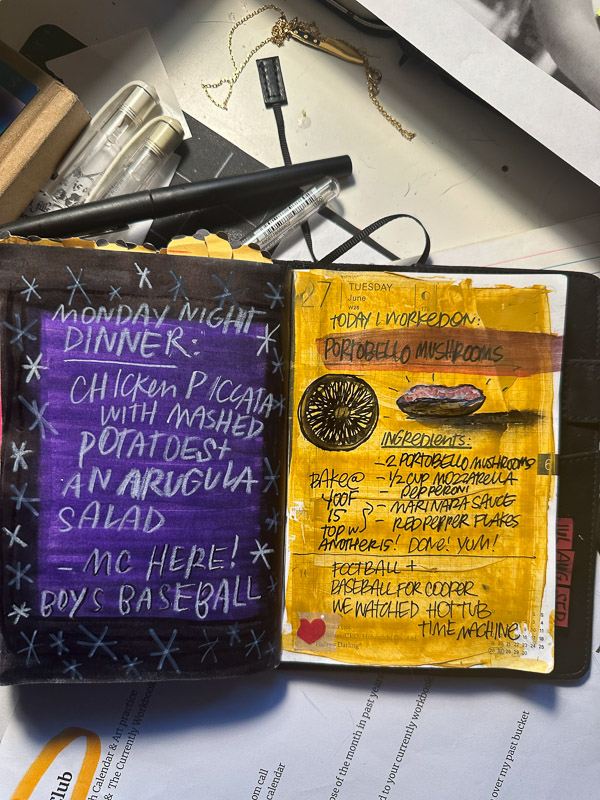 MONDAY NIGHT
DINNER:
CHICKEN PICCATA
WITH MASHED
POTATOES +
AN ARUGULA
SALAD
- MC HERE!
BOYS BASEBALL
27 TUESDAY
June
W26
TODAY I WORKED ON:
PORTOBELLO MUSHROOMS
INGREDIENTS:
- 2 PORTOBELLO MUSHROOMS
- 1/2 CUP MOZZARELLA
- PEPPERONI
- MARINARA SAUCE
- RED PEPPER FLAKES
BAKE @
400F
15
TOP W
ANOTHER 15! DONE! YUM!
FOOTBALL +
BASEBALL FOR COOPER
WE WATCHED HOT TUB
TIME MACHINE
Club
Calendar & Art practice
& The Currently Workbook
om call
calendar
ose of the month in past years
d to your currently workbook
over my past bucket